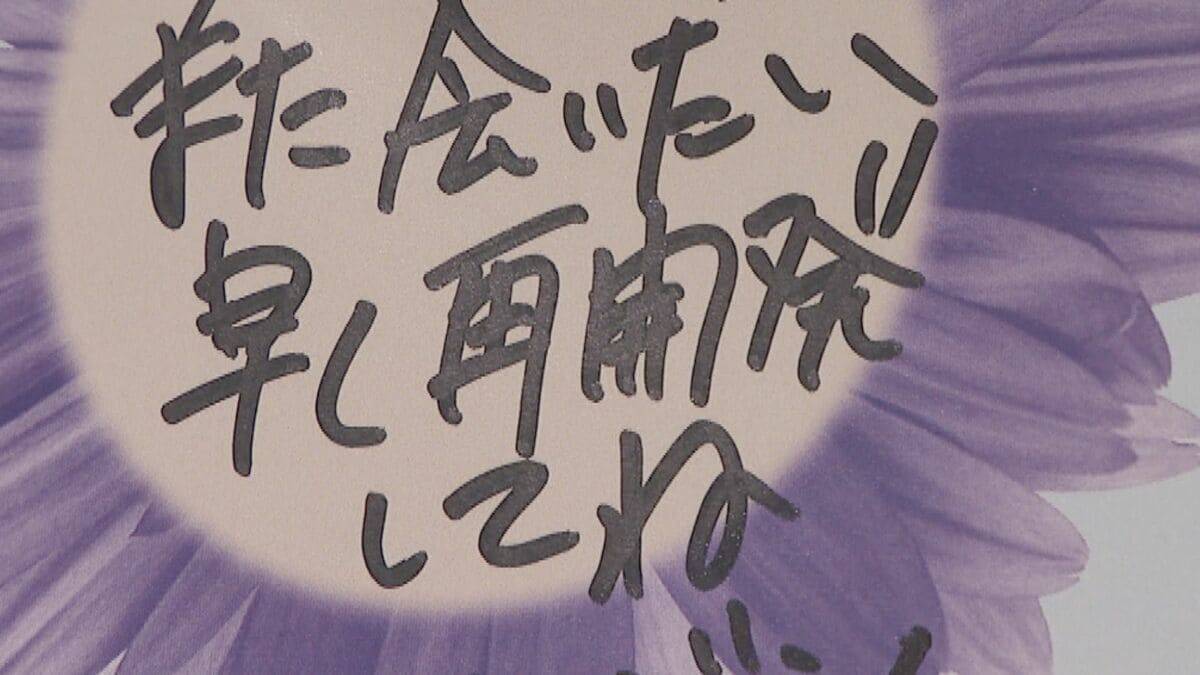 また会いたい!!
早く再開発
してね